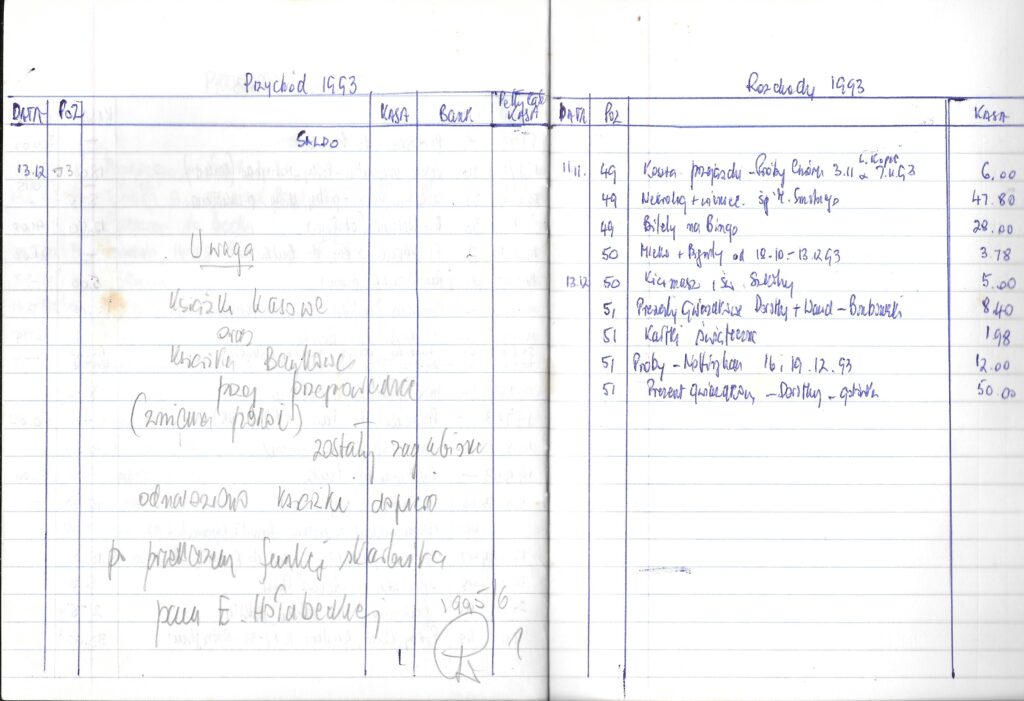 Przychód 1993
DATA POZ KASA Bank Petty Cash KASA
SALDO
13.12 53
Uwaga
Książki Kasowe
oraz
Książki Bankowe
przy przeprowadzce
(zmiana pokoi)
zostały zagubione
odnaleziono książki dopiero
po przekazaniu funkcji skarbnika
pani E. Hołubeckiej
1995/6
1
Rozchody 1993
DATA POZ KASA
11.11. 49 Koszta przejazdu - Próby Chóru 3.11 7.11.93 6.00
49 Nekrolog + śp. 47.80
49 Bilety na Bingo 28.00
50 Mleko + od 18.10 - 13.12.93 3.78
13.12 50 Kiermasz 5.00
51 Prezenty Gwiazdkowe Dorothy + 8.40
51 Kartki świąteczne 1.98
51 Próby - Nottingham 16 i 19.12.93 12.00
51 Prezent gwiazdkowy - Dorothy - gotówka 50.00